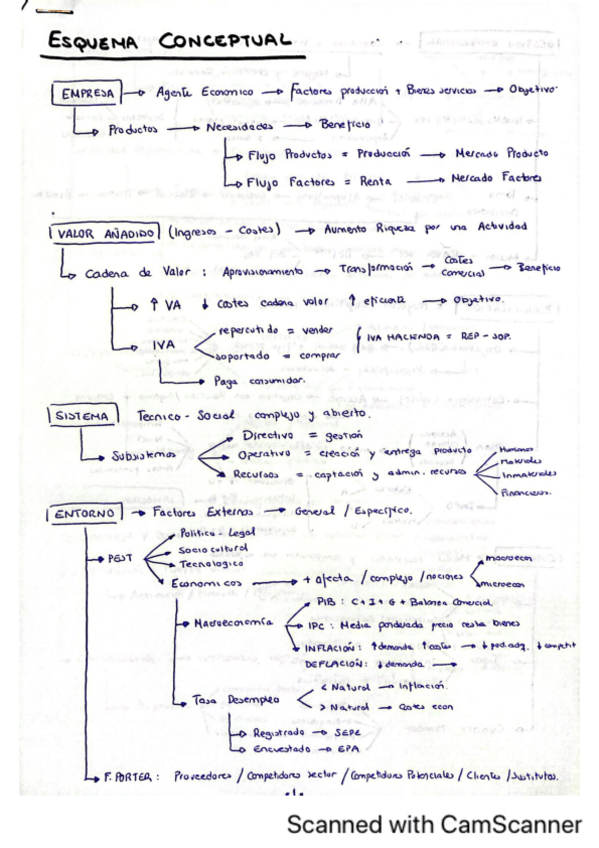 ESQUEMA CONCEPTUAL
EMPRESA → Agente Economico → Factores producción + Bienes servicios → Objetivo.
Productos → Necesidades → Beneficio
Flujo Productos = Producción → Mercado Producto
Flujo Factores = Renta → Mercado Factores
VALOR AÑADIDO (Ingresos - Costes) → Aumento Riqueza por una Actividad
Cadena de Valor : Aprovisionamiento → Transformación → Costes comercial → Beneficio
↑ VA ↓ costes cadena valor ↑ eficiente → Objetivo.
IVA
repercutido = vender
soportado = comprar
IVA HACIENDA = REP - SOP.
Paga consumidor.
SISTEMA Tecnico - Social complejo y abierto.
Subsistemas
Directivo = gestión
Operativo = creación y entrega producto
Recursos = captación y admin. recursos
Humanos
Materiales
Inmateriales
Financieros.
ENTORNO → Factores Externos → General / Específico.
PEST
Politico - Legal
Sociocultural
Tecnologico
Economicos → + afecta / complejo / nociones
macroecon
microecon
Macroeconomía
PIB : C + I + G + Balanza Comercial
IPC : Media ponderada precio cesta bienes
INFLACIÓN : ↑ demanda ↑ costes → ↓ pod. adq. ↓ competit
DEFLACIÓN : ↓ demanda →
Tasa Desempleo
< Natural → Inflación.
> Natural → Costes econ
Registrado → SEPE
Encuestado → EPA
F. PORTER : Proveedores / Competidores sector / Competidores Potenciales / Clientes / Sustitutos.
.1.
Scanned with CamScanner